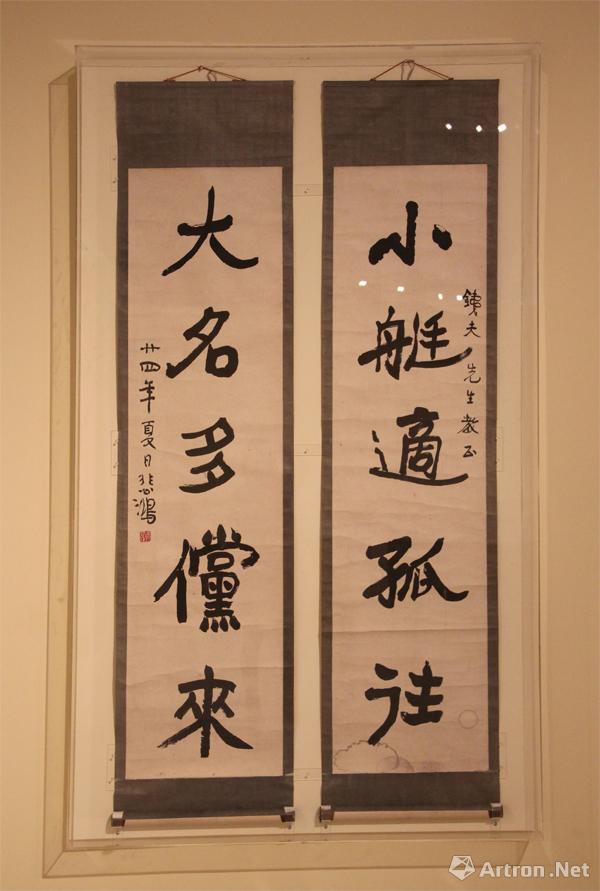 小艇適孤往
銕夫先生教正
大名多儻來
廿四年夏日悲鴻
Artron.Net